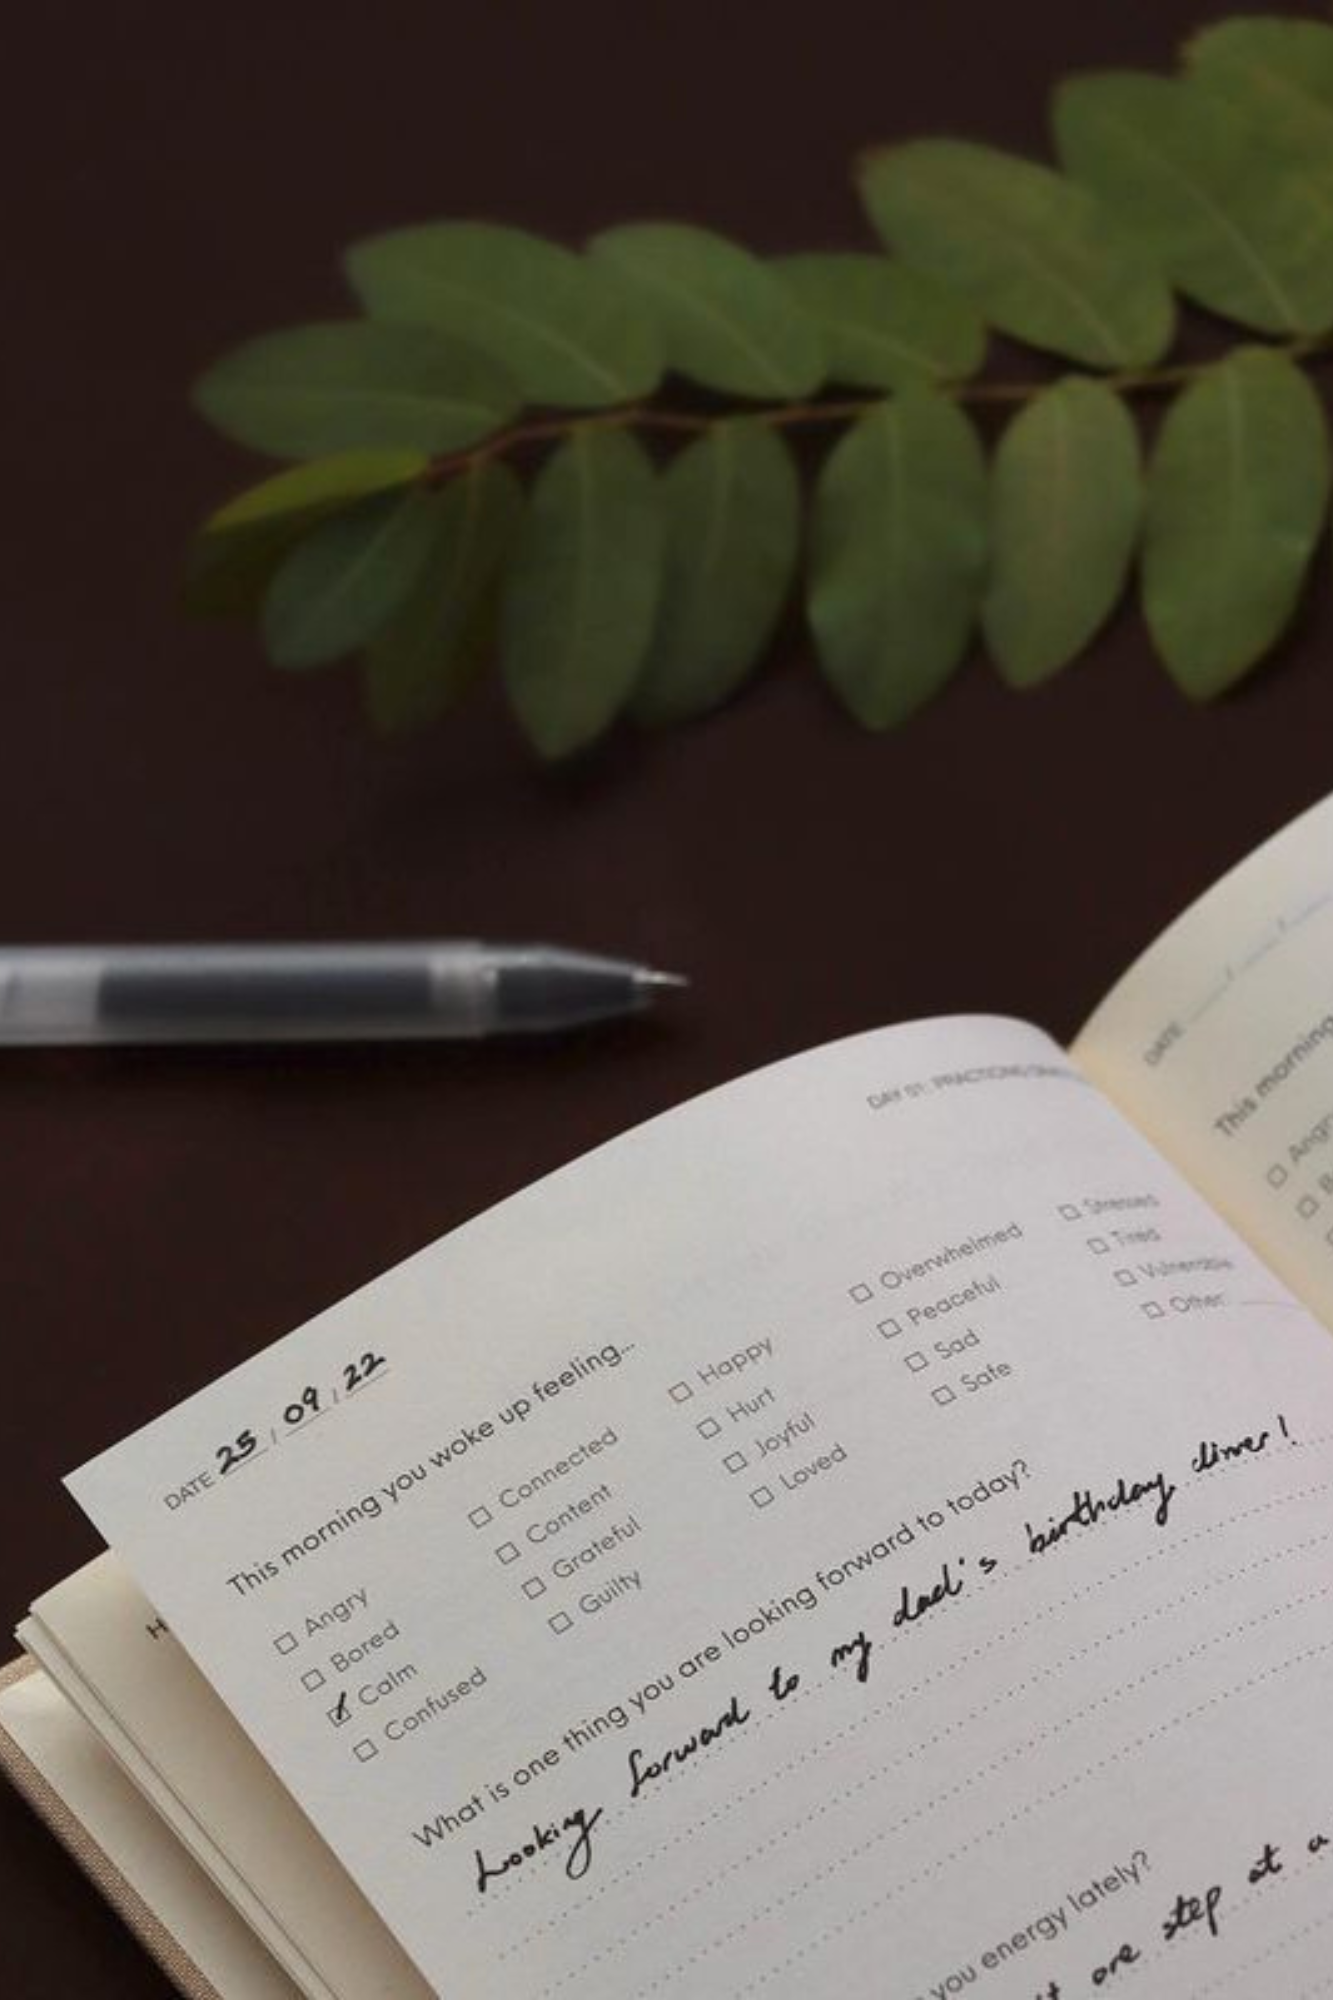 DAY 01: PRACTICING
DATE 25 / 09 / 22
This morning you woke up feeling...
Angry
Bored
Calm
Confused
Connected
Content
Grateful
Guilty
Happy
Hurt
Joyful
Loved
Overwhelmed
Peaceful
Sad
Safe
Stressed
Tired
Vulnerable
Other
What is one thing you are looking forward to today?
Looking forward to my dad's birthday dinner!
you energy lately?
one step at a
DATE
This morning
Angry